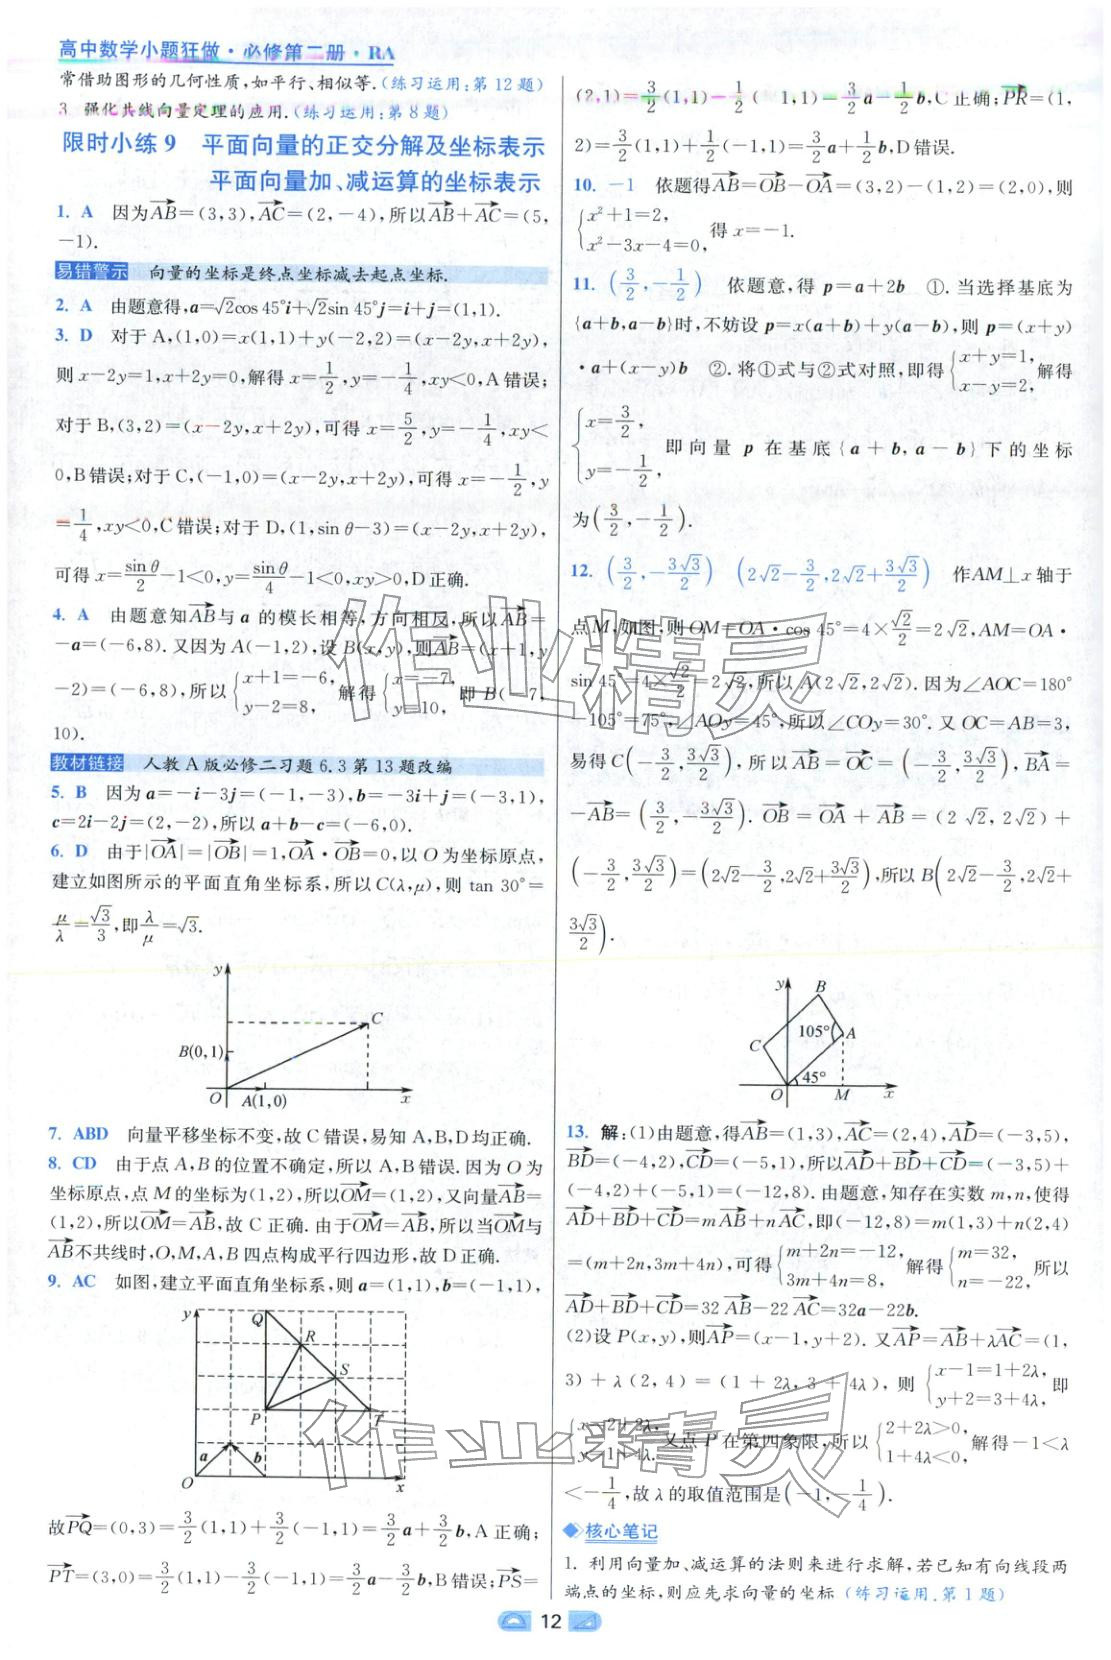 高中数学小题狂做·必修第二册·RA
常借助图形的几何性质,如平行、相似等.(练习运用:第12题)
3. 强化共线向量定理的应用.(练习运用:第8题)
限时小练9 平面向量的正交分解及坐标表示
平面向量加、减运算的坐标表示
1. A 因为AB→=(3,3),AC→=(2,-4),所以AB→+AC→=(5,
-1).
易错警示 向量的坐标是终点坐标减去起点坐标.
2. A 由题意得,a=√2cos 45°i+√2sin 45°j=i+j=(1,1).
3. D 对于A,(1,0)=x(1,1)+y(-2,2)=(x-2y,x+2y),
则x-2y=1,x+2y=0,解得x=1/2,y=-1/4,xy<0,A错误;
对于B,(3,2)=(x-2y,x+2y),可得x=5/2,y=-1/4,xy<
0,B错误;对于C,(-1,0)=(x-2y,x+2y),可得x=-1/2,y
=1/4,xy<0,C错误;对于D,(1,sin θ-3)=(x-2y,x+2y),
可得x=sinθ/2-1<0,y=sinθ/4-1<0,xy>0,D正确.
4. A 由题意知AB→与a的模长相等,方向相反,所以AB→=
-a=(-6,8).又因为A(-1,2),设B(x,y),则AB→=(x+1,y
-2)=(-6,8),所以{x+1=-6, y-2=8, 解得{x=-7, y=10, 即B(-7,
10).
教材链接 人教A版必修二习题6.3第13题改编
5. B 因为a=-i-3j=(-1,-3),b=-3i+j=(-3,1),
c=2i-2j=(2,-2),所以a+b-c=(-6,0).
6. D 由于|OA→|=|OB→|=1,OA→·OB→=0,以O为坐标原点,
建立如图所示的平面直角坐标系,所以C(λ,μ),则tan 30°=
μ/λ=√3/3,即λ/μ=√3.
y
C
B(0,1)
O A(1,0) x
7. ABD 向量平移坐标不变,故C错误,易知A,B,D均正确.
8. CD 由于点A,B的位置不确定,所以A,B错误.因为O为
坐标原点,点M的坐标为(1,2),所以OM→=(1,2),又向量AB→=
(1,2),所以OM→=AB→,故C正确.由于OM→=AB→,所以当OM→与
AB→不共线时,O,M,A,B四点构成平行四边形,故D正确.
9. AC 如图,建立平面直角坐标系,则a=(1,1),b=(-1,1),
y
Q
R
S
P T
a b
O x
故PQ→=(0,3)=3/2(1,1)+3/2(-1,1)=3/2a+3/2b,A正确;
PT→=(3,0)=3/2(1,1)-3/2(-1,1)=3/2a-3/2b,B错误;PS→=
(2,1)=3/2(1,1)-1/2(-1,1)=3/2a-1/2b,C正确;PR→=(1,
2)=3/2(1,1)+1/2(-1,1)=3/2a+1/2b,D错误.
10. -1 依题得AB→=OB→-OA→=(3,2)-(1,2)=(2,0),则
{x²+1=2, x²-3x-4=0, 得x=-1.
11. (3/2,-1/2) 依题意,得p=a+2b ①.当选择基底为
{a+b,a-b}时,不妨设p=x(a+b)+y(a-b),则p=(x+y)
·a+(x-y)b ②.将①式与②式对照,即得{x+y=1, x-y=2, 解得
{x=3/2, y=-1/2, 即向量p在基底{a+b,a-b}下的坐标
为(3/2,-1/2).
12. (3/2,-3√3/2) (2√2-3/2,2√2+3√3/2) 作AM⊥x轴于
点M,如图,则OM=OA·cos 45°=4×√2/2=2√2,AM=OA·
sin 45°=4×√2/2=2√2,所以A(2√2,2√2).因为∠AOC=180°
-105°=75°,∠AOy=45°,所以∠COy=30°.又OC=AB=3,
易得C(-3/2,3√3/2),所以AB→=OC→=(-3/2,3√3/2),BA→=
-AB→=(3/2,-3√3/2).OB→=OA→+AB→=(2√2,2√2)+
(-3/2,3√3/2)=(2√2-3/2,2√2+3√3/2),所以B(2√2-3/2,2√2+
3√3/2).
y B
105° A
C
45°
O M x
13. 解:(1)由题意,得AB→=(1,3),AC→=(2,4),AD→=(-3,5),
BD→=(-4,2),CD→=(-5,1),所以AD→+BD→+CD→=(-3,5)+
(-4,2)+(-5,1)=(-12,8).由题意,知存在实数m,n,使得
AD→+BD→+CD→=mAB→+nAC→,即(-12,8)=m(1,3)+n(2,4)
=(m+2n,3m+4n),可得{m+2n=-12, 3m+4n=8, 解得{m=32, n=-22, 所以
AD→+BD→+CD→=32AB→-22AC→=32a-22b.
(2)设P(x,y),则AP→=(x-1,y+2).又AP→=AB→+λAC→=(1,
3)+λ(2,4)=(1+2λ,3+4λ),则{x-1=1+2λ, y+2=3+4λ, 即
{x=2+2λ, y=1+4λ. 又点P在第四象限,所以{2+2λ>0, 1+4λ<0, 解得-1<λ
<-1/4,故λ的取值范围是(-1,-1/4).
核心笔记
1. 利用向量加、减运算的法则来进行求解,若已知有向线段两
端点的坐标,则应先求向量的坐标.(练习运用:第1题)
12
作业精灵
作业精灵